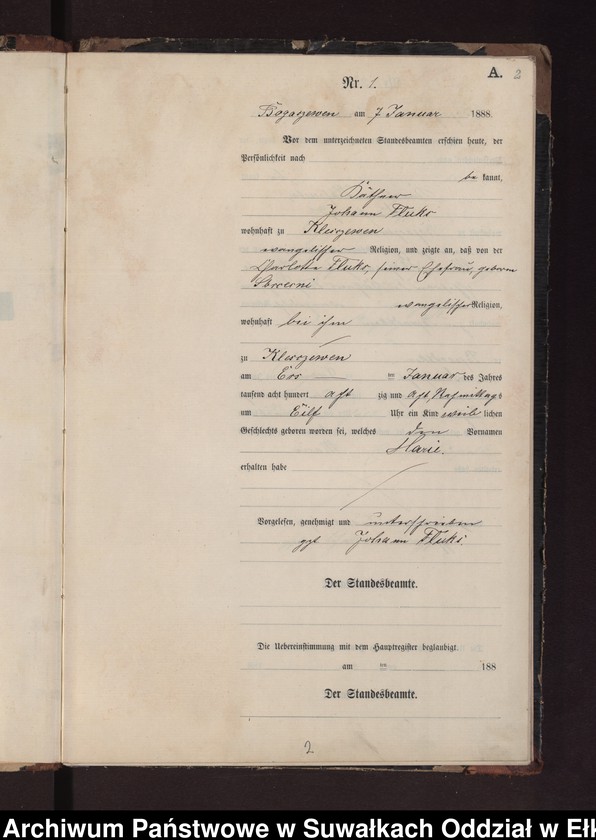 A. 2
Nr. 1.
Bogaszewen am 7 Januar 1888.
Vor dem unterzeichneten Standesbeamten erschien heute, der
Persönlichkeit nach
be kannt,
Käthner
Johann Fluks
wohnhaft zu Kleszewen
evangelischer Religion, und zeigte an, daß von der
Charlotte Fluks, seiner Ehefrau, geboren
evangelischer Religion,
wohnhaft bei ihm
zu Kleszewen
am Januar des Jahres
tausend acht hundert acht zig und acht Nachmittags
um Eilf Uhr ein Kind weib lichen
Geschlechts geboren worden sei, welches den Vornamen
Marie.
erhalten habe
Vorgelesen, genehmigt und unterschrieben
ggt Johann Fluks.
Der Standesbeamte.
Die Uebereinstimmung mit dem Hauptregister beglaubigt.
am ten 188
Der Standesbeamte.
2
Archiwum Państwowe w Suwałkach Oddział w Ełk